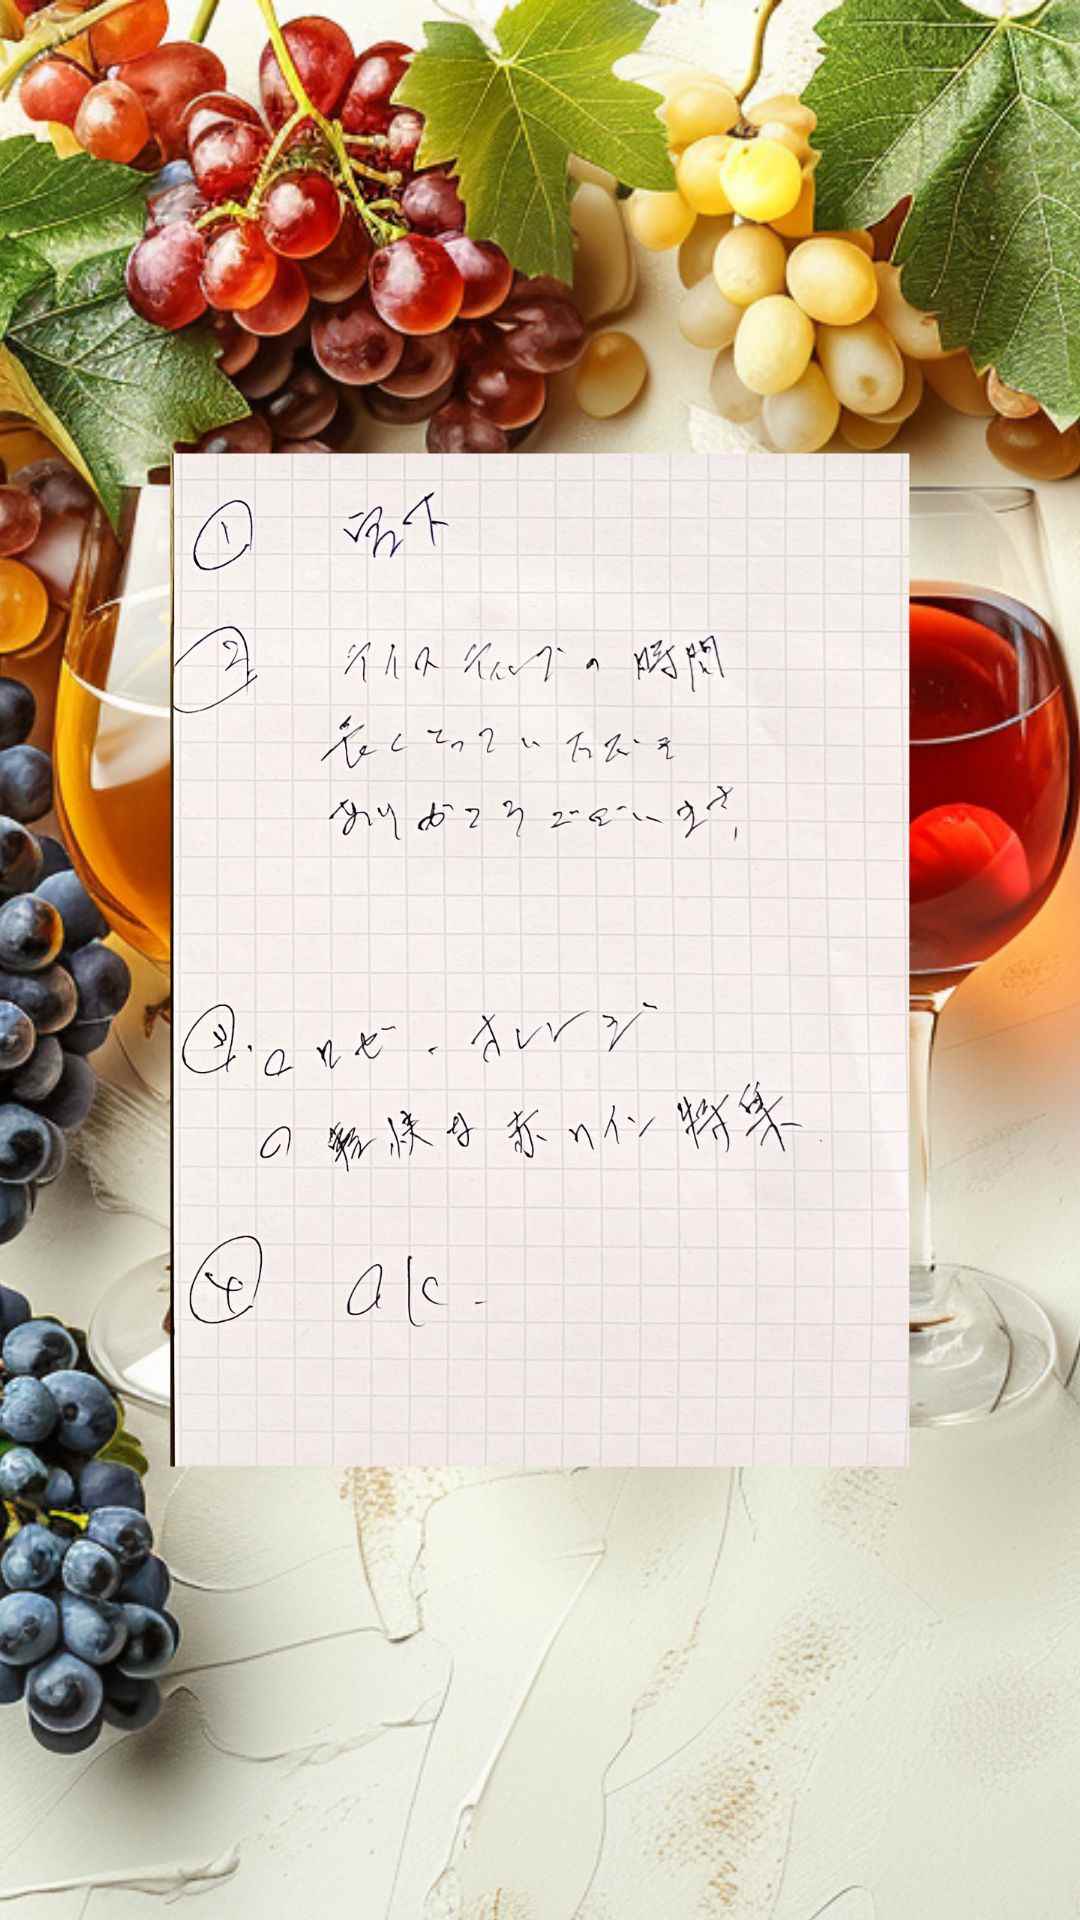 ①
② テイスティングの時間
長くとっていただき
ありがとうございます。
③・ロゼ・オレンジ
の軽快な赤ワイン特集
④ OK.